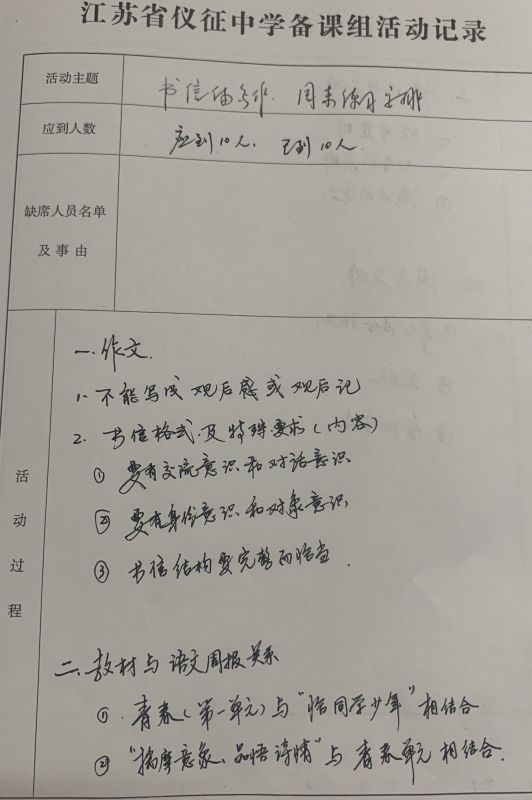 江苏省仪征中学备课组活动记录
活动主题
书信体写作. 周末练习安排
应到人数
应到10人. 已到10人.
缺席人员名单
及事由
活动过程
一.作文.
1. 不能写成 观后感 或 观后记
2. 书信格式及特殊要求(内容)
① 要有交流意识和对话意识
② 要有身份意识和对象意识
③ 书信结构要完整而恰当.
二、教材与语文周报关系
①. 青春(第一单元)与"恰同学少年"相结合
② "揣摩意象、品悟诗情"与青春单元相结合.